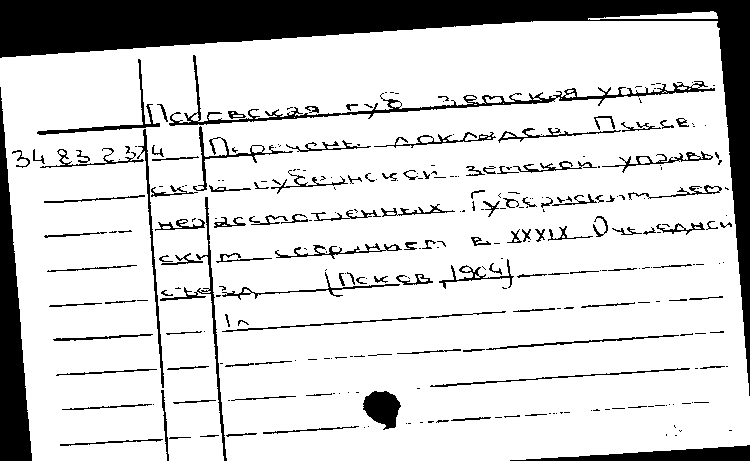 Псковская губ земская управа.
34 83 2 3214 Перечень докладов Псков
ской губернской земской управы,
нерассмотренных Губернским зем-
ским собранием в XXXIX Очередной
съезд [Псков, 1904]
1л